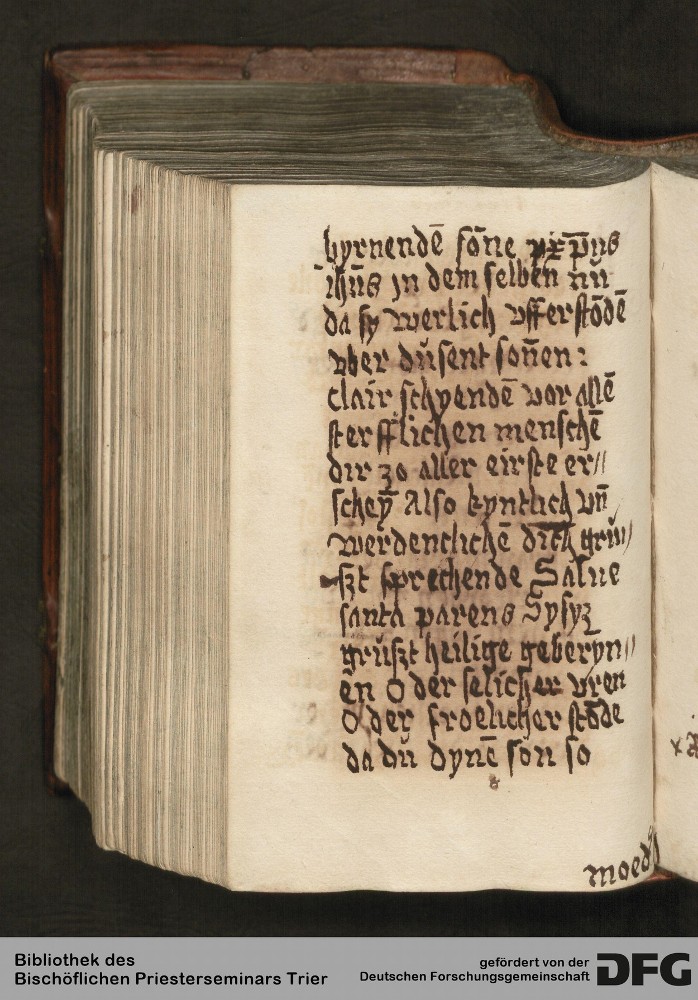 byrnendē sōne xp̄us
ih̄us jn dem selben nū
da sy werlich vfferstōdē
vber dűsent son̄en:
clair schynendē vor allē
sterfflichen menschē
dir zo aller eirste er//
schey̅ Also kyntlich vn̄
werdenclichē dich grű//
szt sprechende Salue
santa parens Sysyz
grűszt heilige geberyn//
en O der selicher vren
O der froelicher stōde
da dű dynē son so
moed
Bibliothek des
Bischöflichen Priesterseminars Trier
gefördert von der
Deutschen Forschungsgemeinschaft
DFG